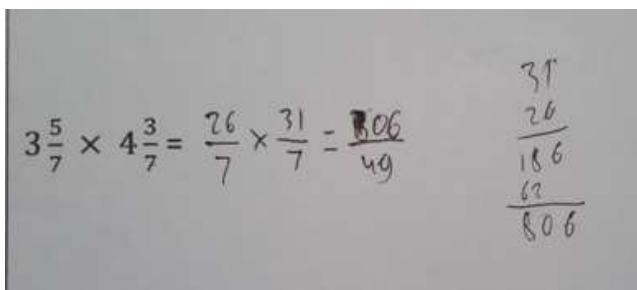 3 5/7 × 4 3/7 = 26/7 × 31/7 = 806/49
31
26
186
62
806